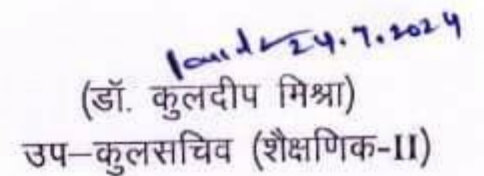 24.7.2024
(डॉ. कुलदीप मिश्रा)
उप–कुलसचिव (शैक्षणिक-II)